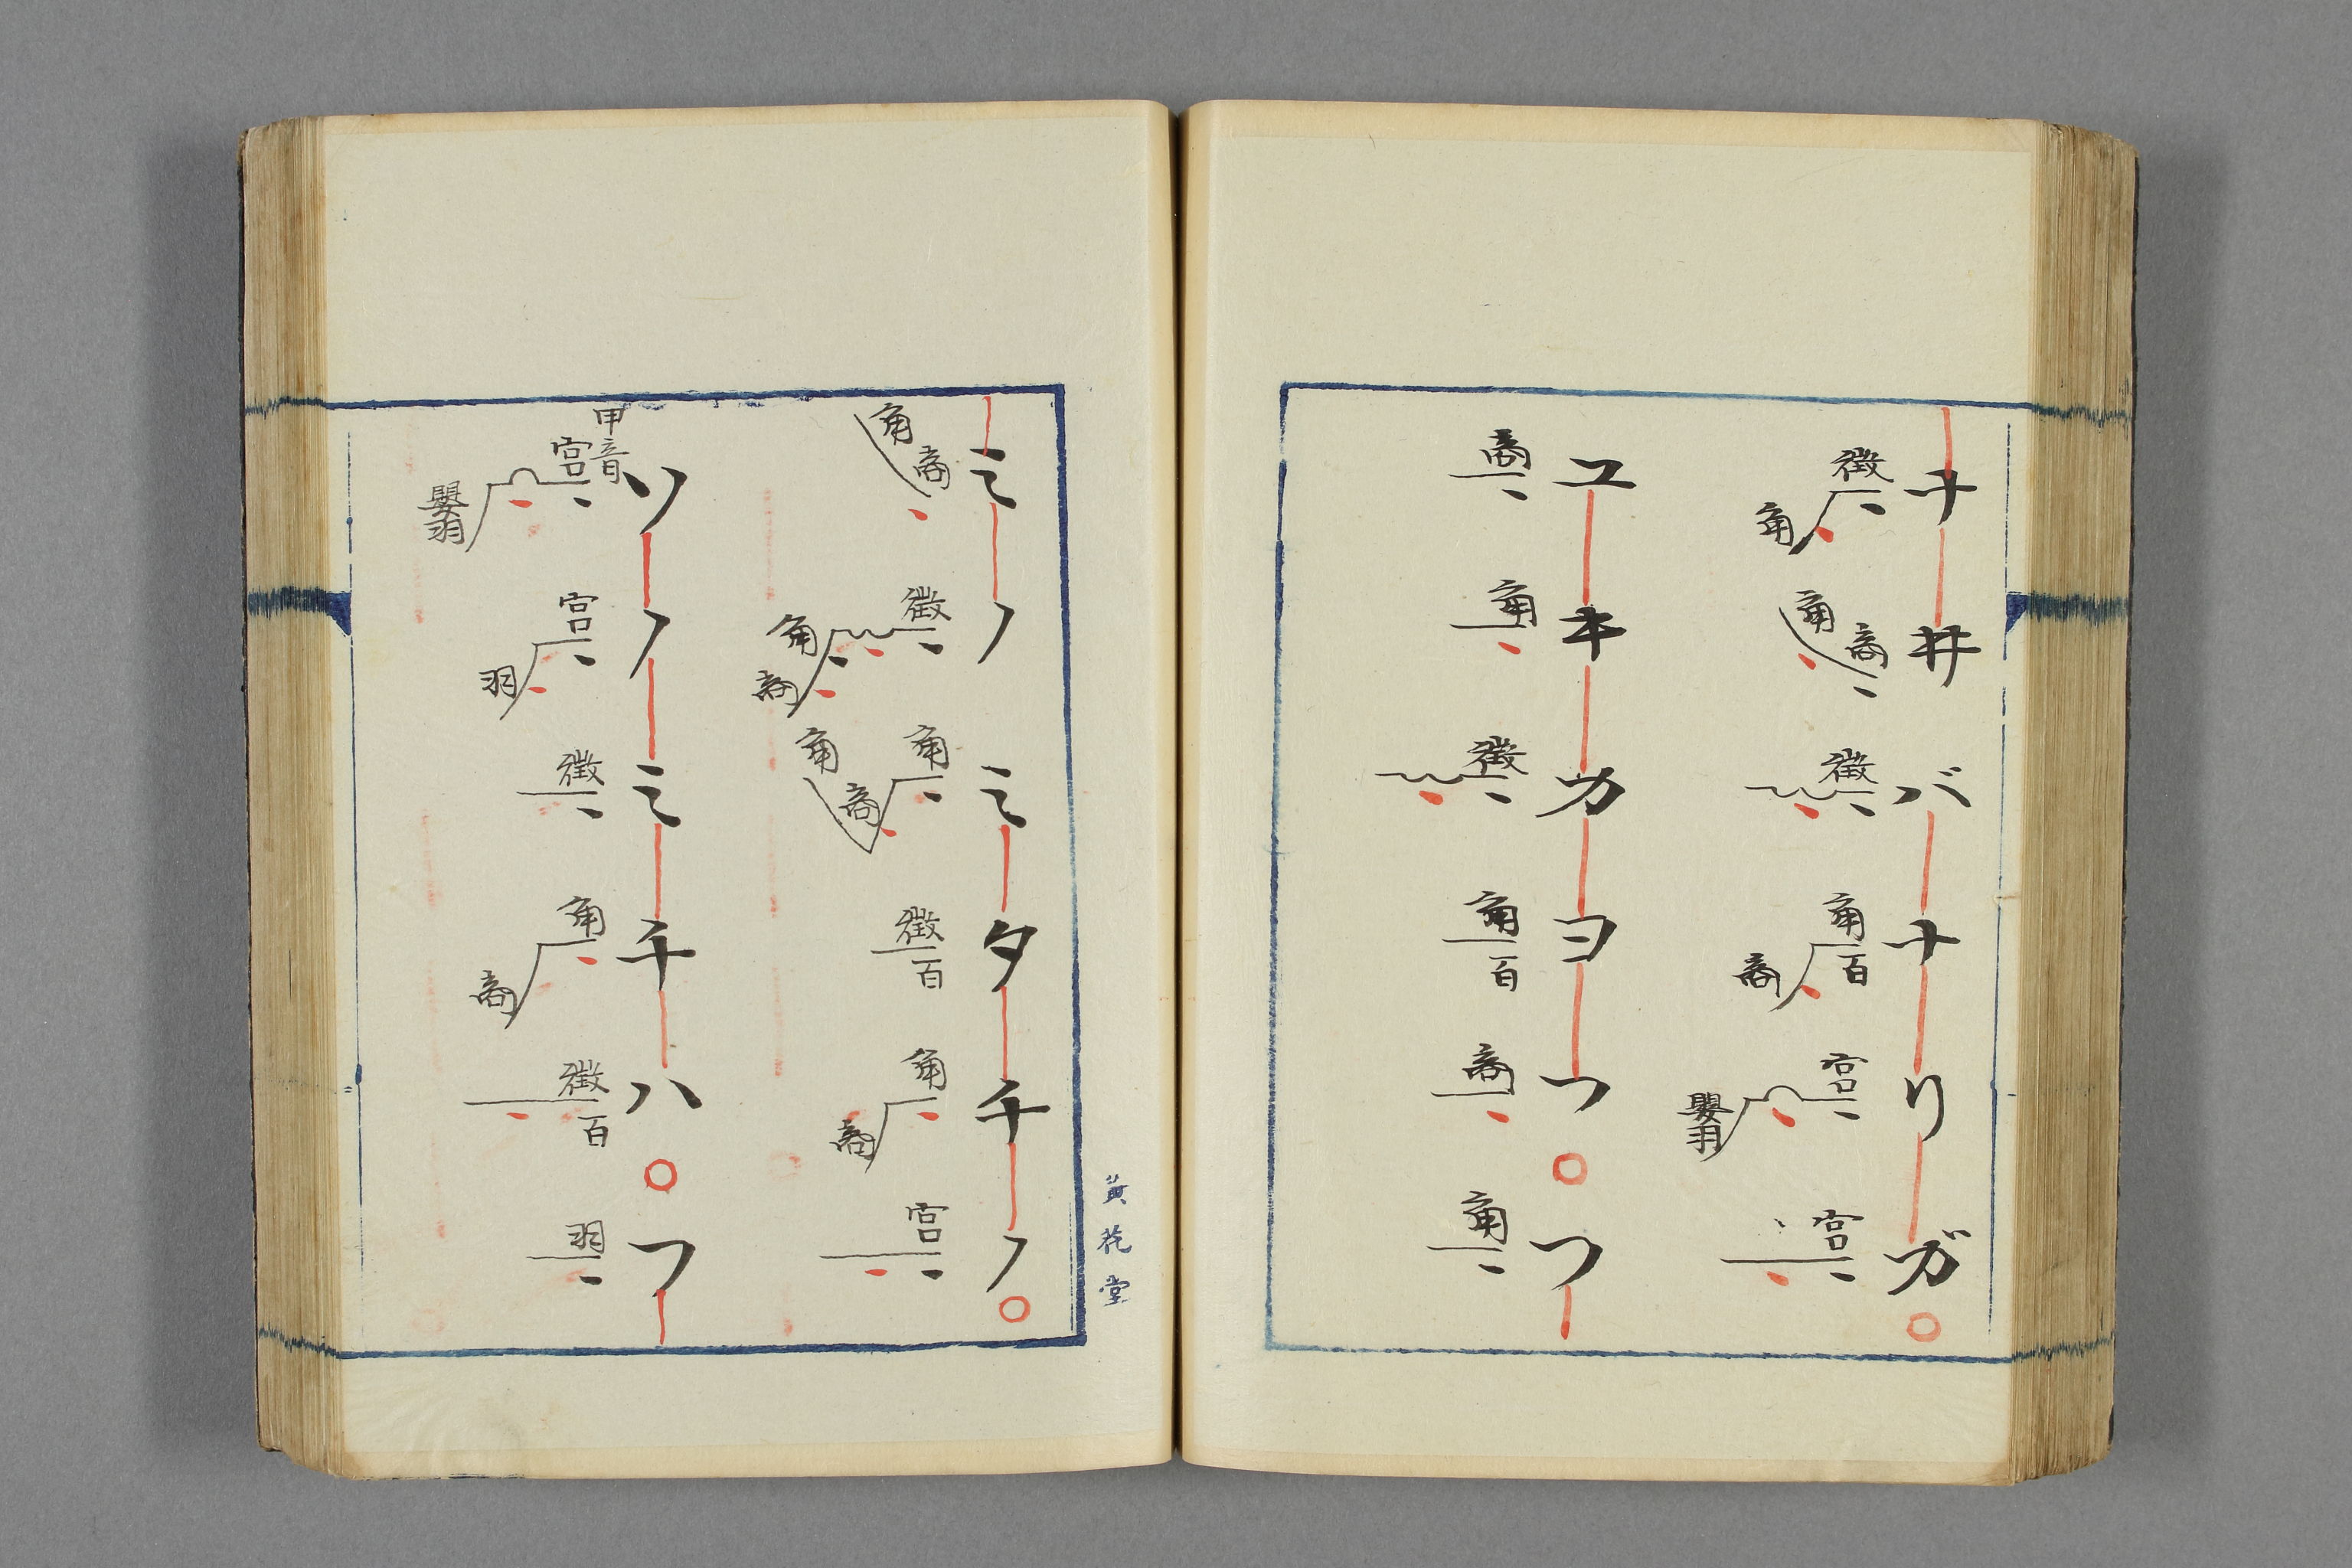 ナヰバナリガ○
徴角 角商 徴 角百商 宮嬰羽 宮
ユキカヨフ○フ
商 角 徴 角百 商 角
黄花堂
ミノミタチノ○
角商 徴角商 角商角 徴百 角商 宮
ソノミチハ○フ
甲音
宮嬰羽 宮羽 徴 角商 徴百 羽